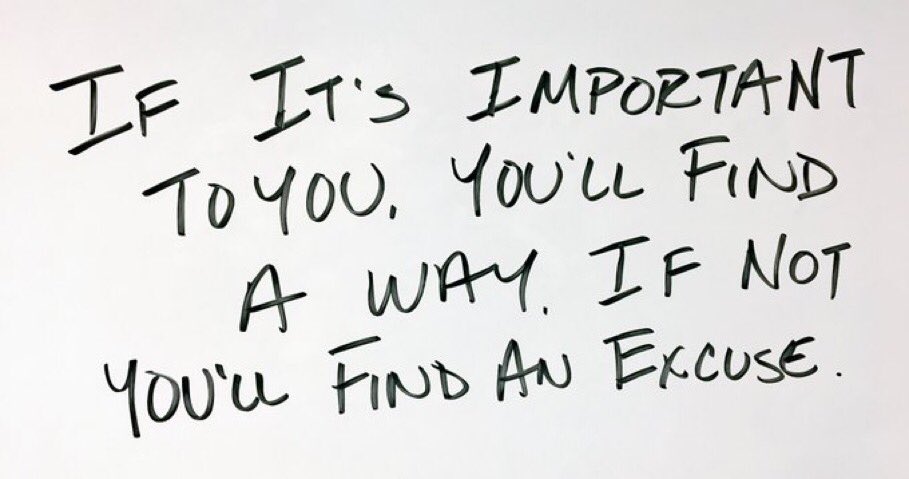 IF IT'S IMPORTANT
TO YOU. YOU'LL FIND
A WAY. IF NOT
YOU'LL FIND AN EXCUSE.